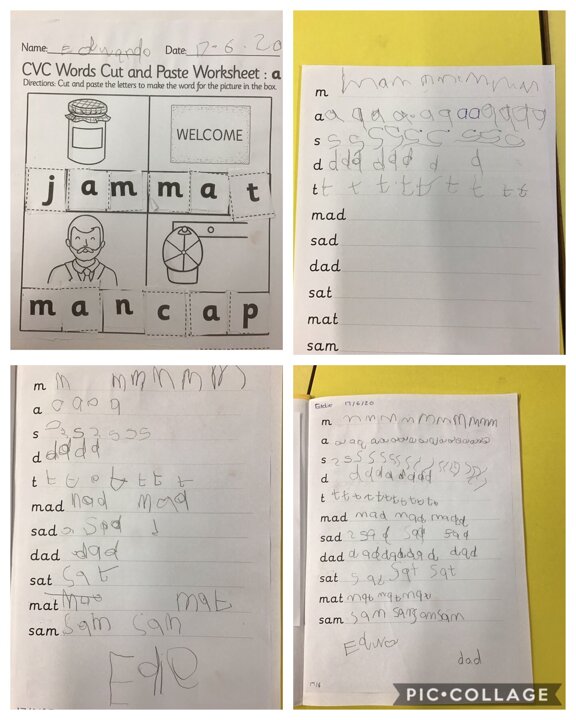 Name: Edwardo Date: 17-6.20
CVC Words Cut and Paste Worksheet : a
Directions: Cut and paste the letters to make the word for the picture in the box.
WELCOME
j a m m a t
m a n c a p
m m a m m m m m m m
a a a a a a a a a a a a a
s s s s s s s s s s
d d d d d d d d d
t t t t t t t t t t
mad
sad
dad
sat
mat
sam
m m m m m m m
a a a a a
s s s s s s
d d d d d
t t t t t t t
mad mad mad
sad sad
dad dad
sat sat
mat mat mat
sam sam sam
Edie
Eddie 17/6/20
m m m m m m m m m m
a a a a a a a a a a a
s s s s s s s s s s
d d d d d d d d
t t t t t t t t t t t
mad mad mad madd
sad sad sad sad
dad dad dad dad dad
sat sat sat sat
mat mat mat mat
sam sam sam sam sam
dad
17/6
PIC•COLLAGE